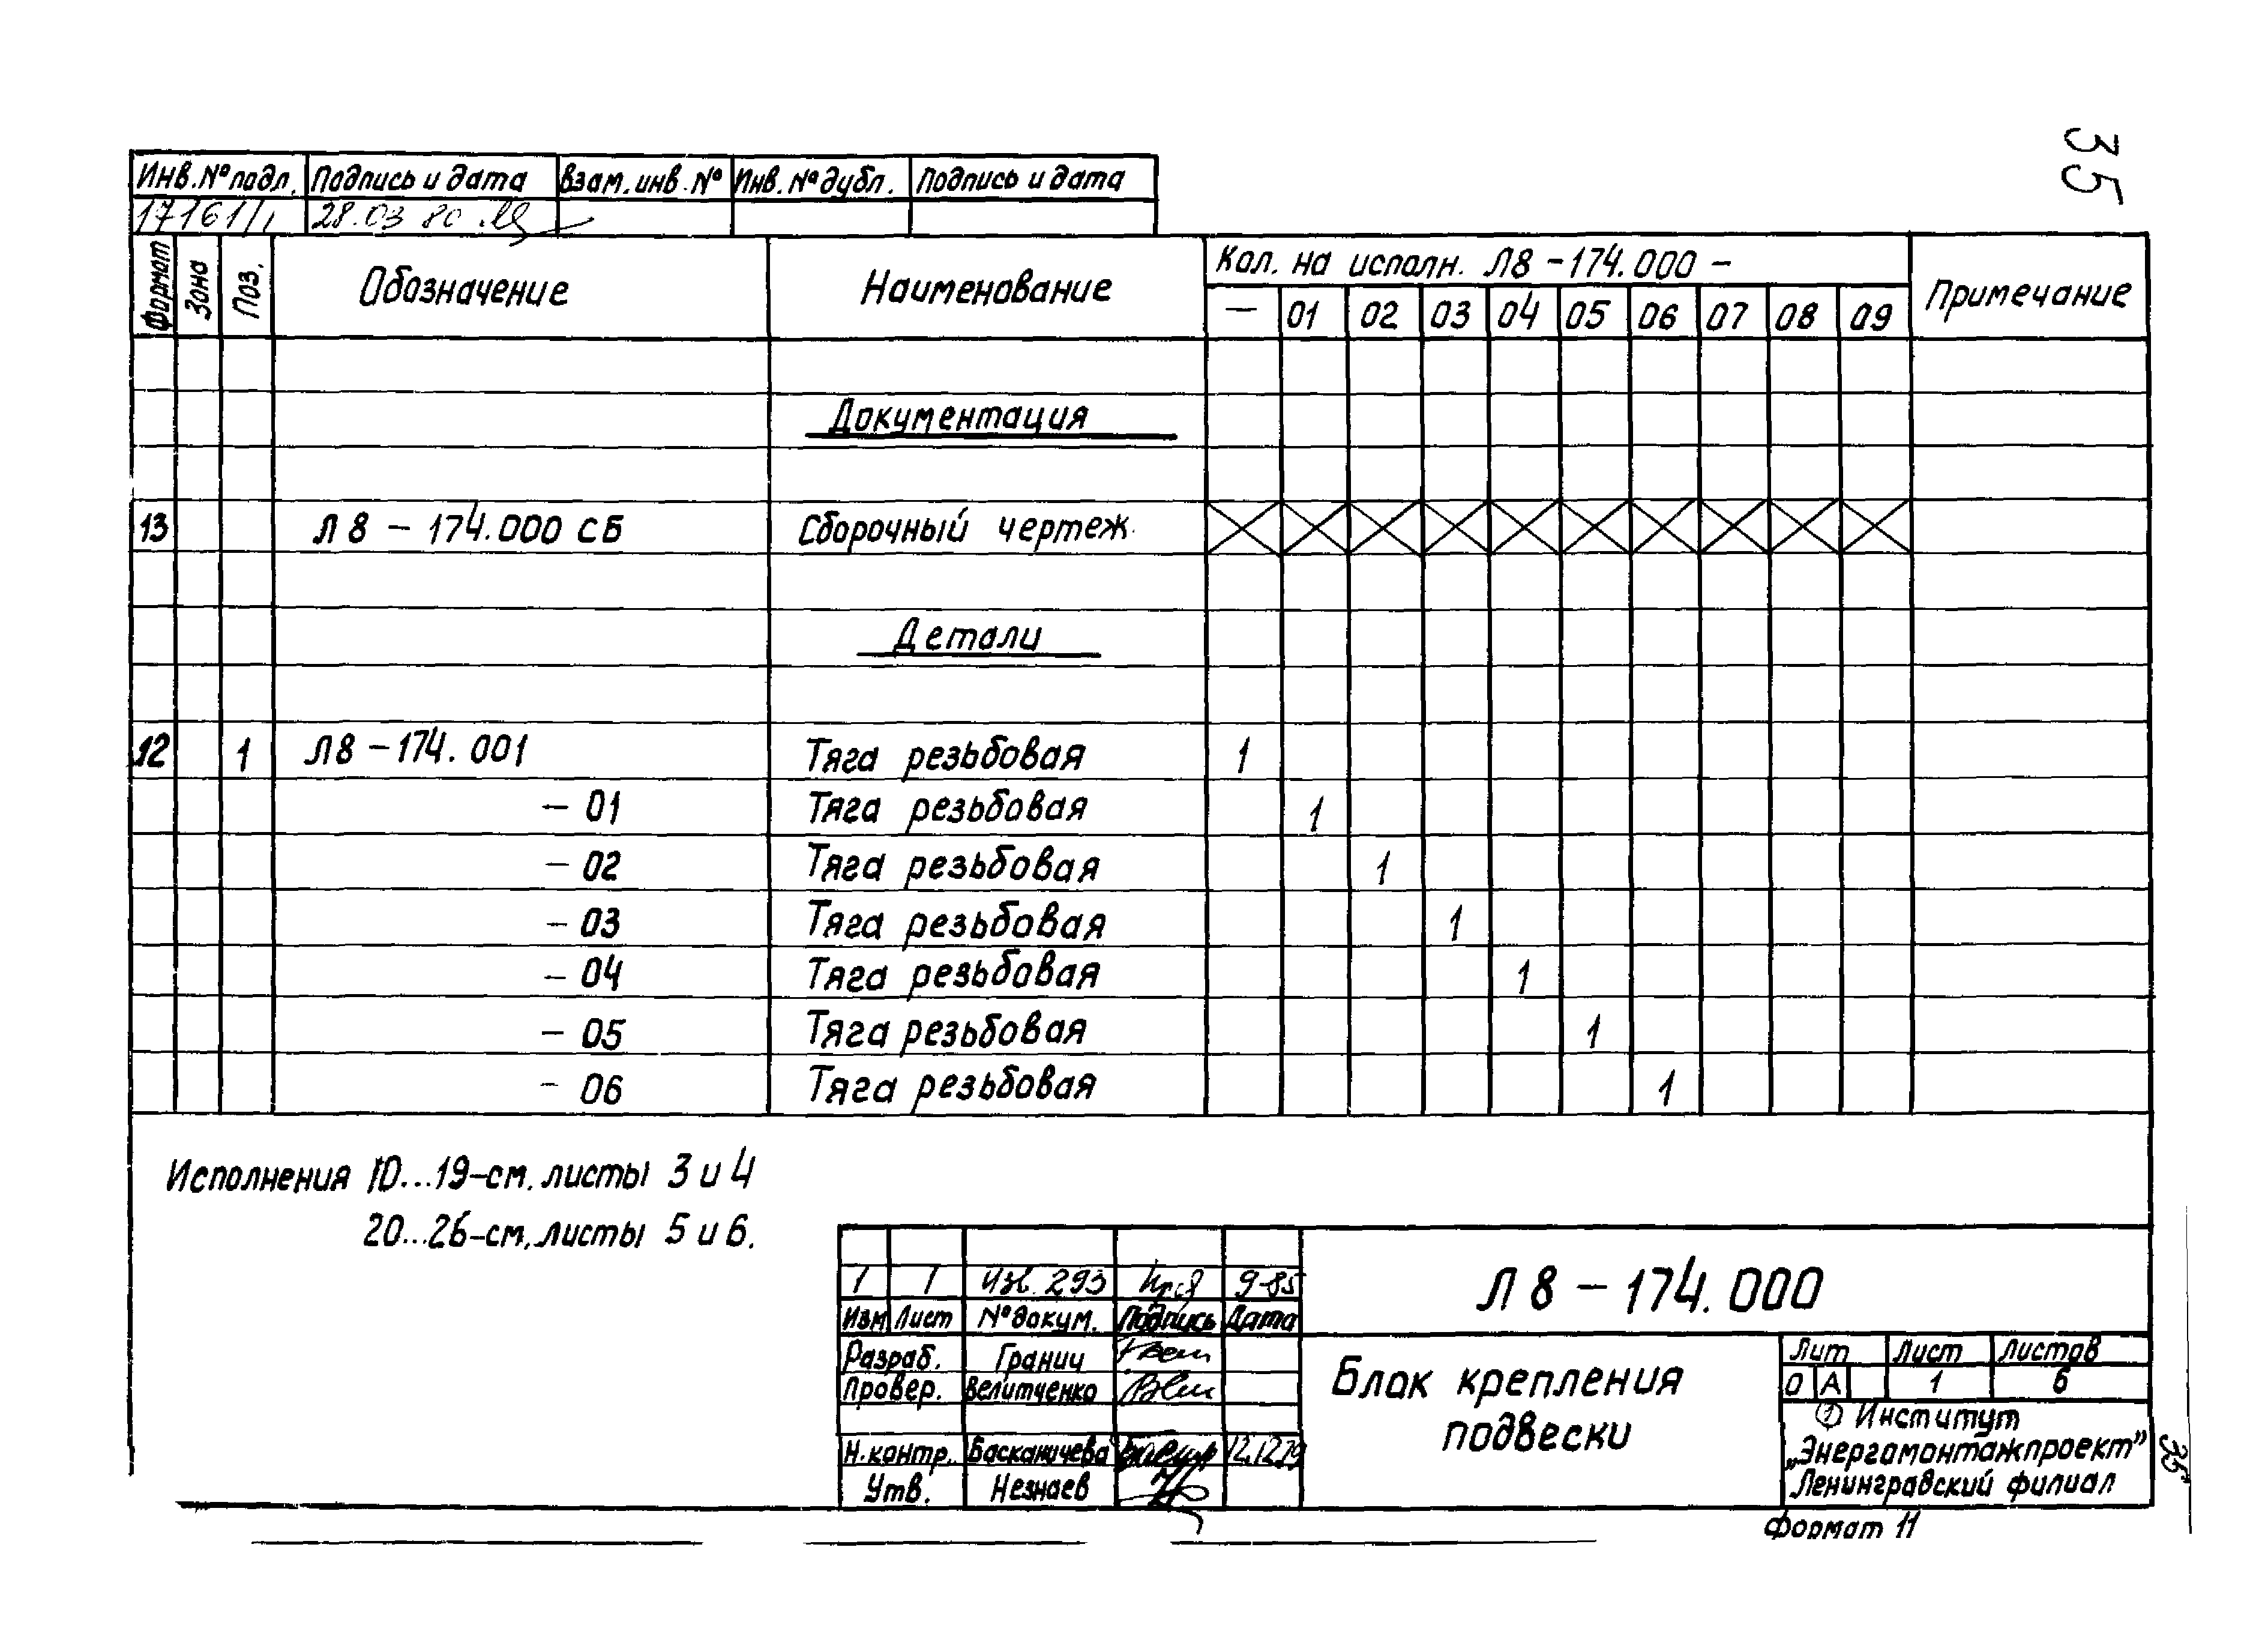 35
Инв.№подл. Подпись и дата Взам.инв.№ Инв.№дубл. Подпись и дата
17161/1 28.03 80
Формат Зона Поз. Обозначение Наименование Кол. на исполн. Л8-174.000 - Примечание
— 01 02 03 04 05 06 07 08 09
Документация
13 Л8 - 174.000 СБ Сборочный чертеж
Детали
12 1 Л8-174.001 Тяга резьбовая 1
- 01 Тяга резьбовая 1
- 02 Тяга резьбовая 1
- 03 Тяга резьбовая 1
- 04 Тяга резьбовая 1
- 05 Тяга резьбовая 1
- 06 Тяга резьбовая 1
Исполнения 10...19-см. листы 3 и 4
20...26-см. листы 5 и 6.
1 1 Изв. 293 9-85
Изм Лист №докум. Подпись Дата
Разраб. Гранич
Провер. Велитченко
Н.контр. Басканичева 12.12.79
Утв. Незнаев
Л8 - 174.000
Блок крепления
подвески
Лит Лист Листов
О А 1 6
① Институт
„Энергомонтажпроект”
Ленинградский филиал
Формат 11
35